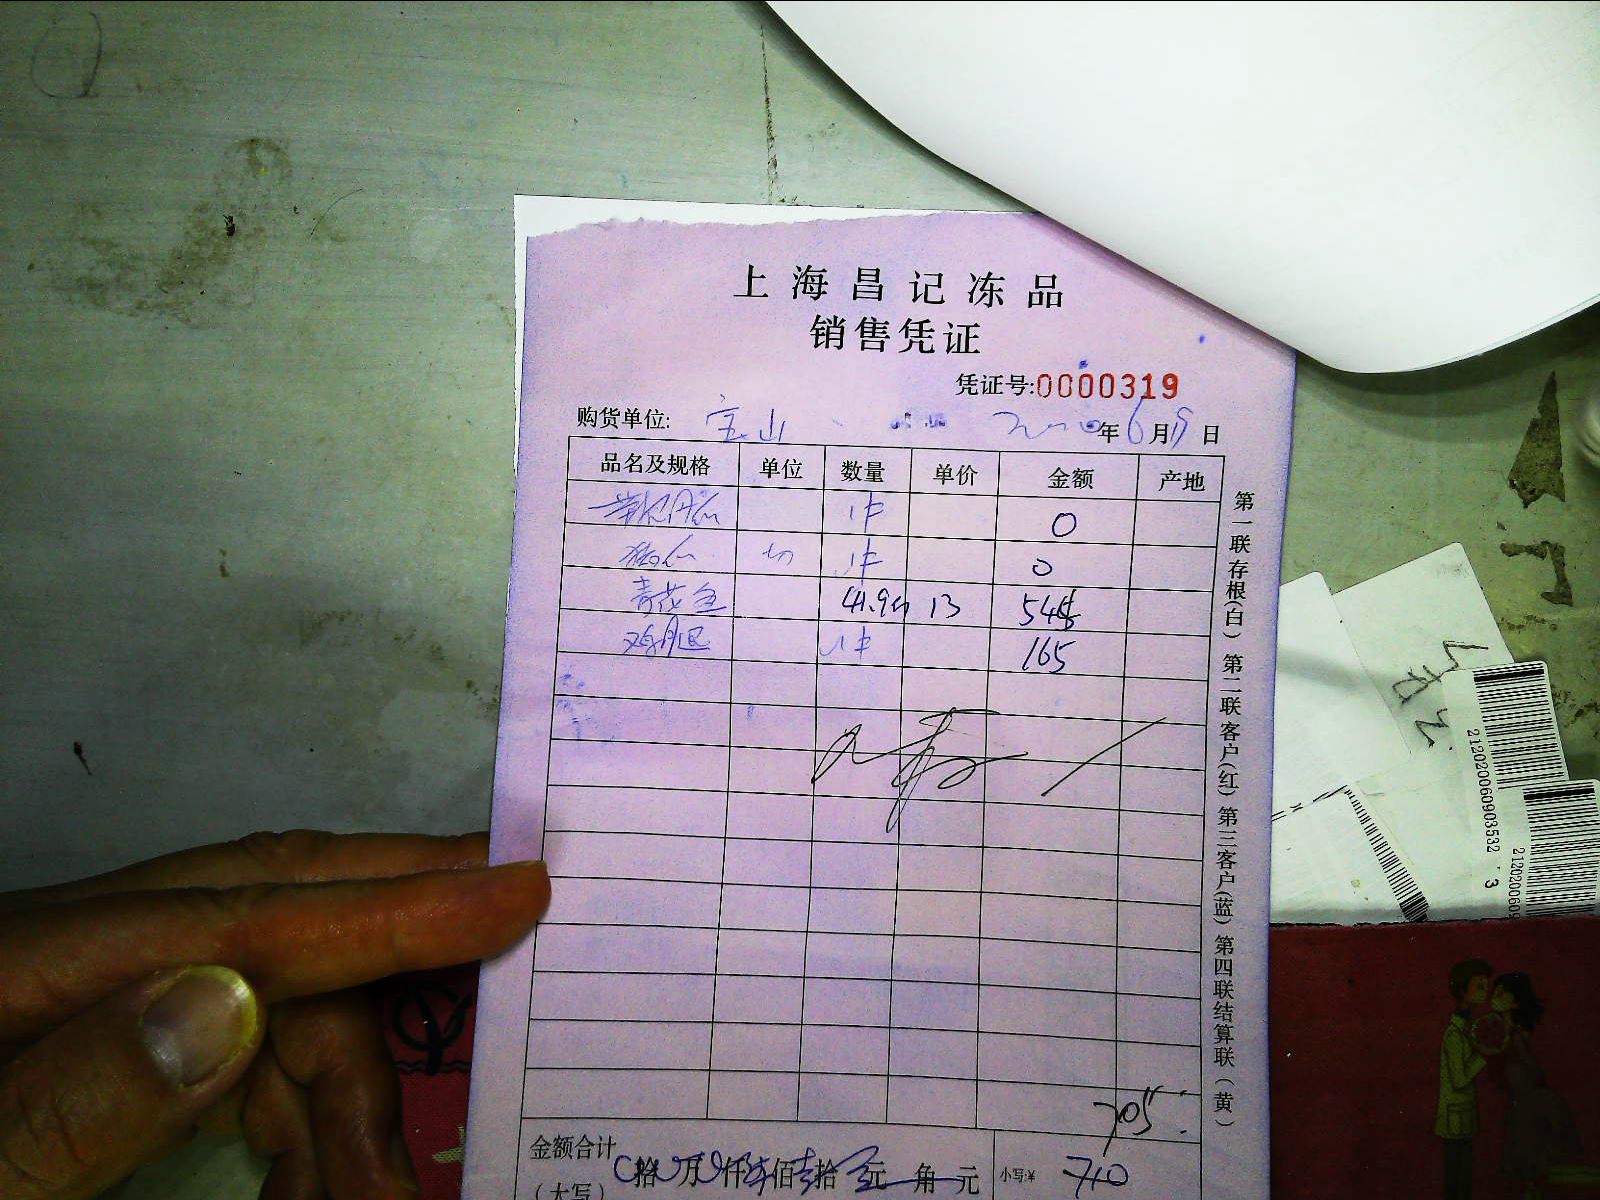 上海昌记冻品
销售凭证
凭证号:0000319
购货单位: 宝山 年6月19日
品名及规格 单位 数量 单价 金额 产地
1件 0
1件 0
青花鱼 41.9 13 545
鸡腿 1件 165
705
金额合计
(大写) 拾 万 仟 佰 拾 元 角 元 小写:¥ 710
第一联存根(白) 第二联客户(红) 第三客户(蓝) 第四联结算联(黄)
212020060903532 3
212020060